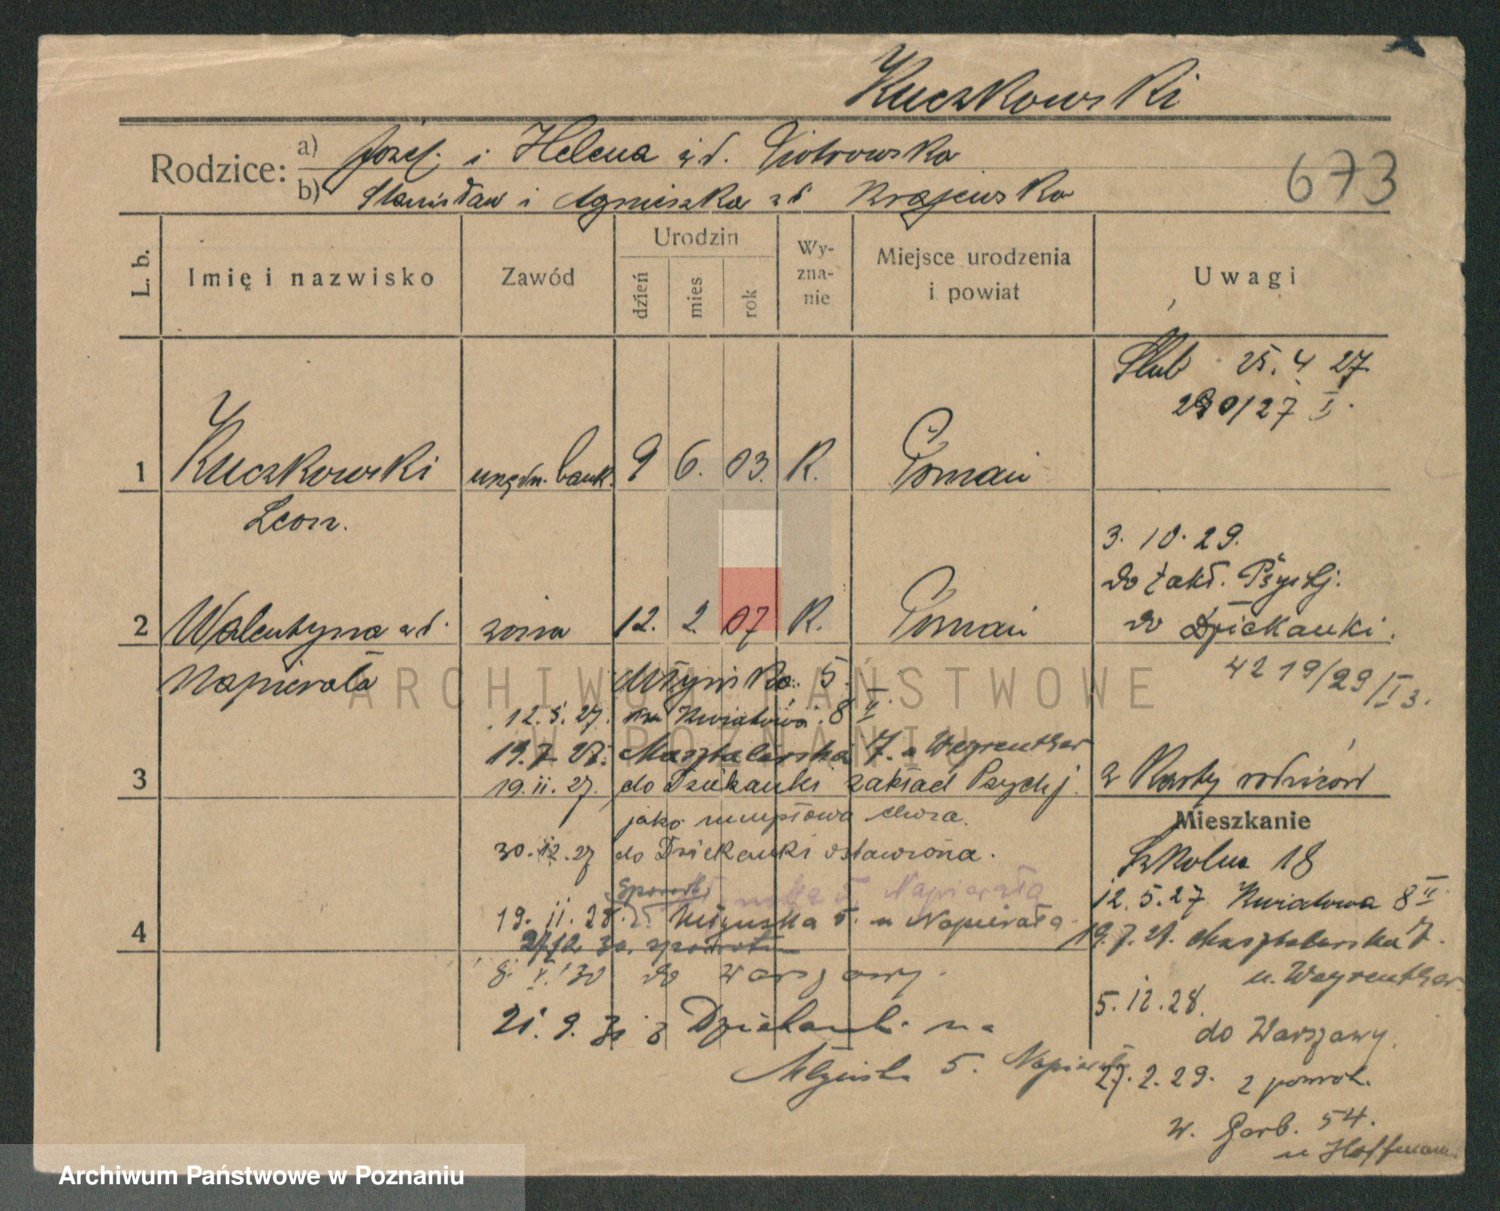 Kuczkowski
Rodzice:
a) Józef i Helena z d. Piotrowska
b) Stanisław i Agnieszka z d Krajewska
673
L. b.
Imię i nazwisko
Zawód
Urodzin
dzień
mies
rok
Wy-
zna-
nie
Miejsce urodzenia
i powiat
Uwagi
Ślub 25. 4 27.
/27 I.
1 Kuczkowski urzędn. bank. 9 6. 03. R. Poznań
Leon.
3. 10. 29.
do zakł. Psych.
do Dziekanki.
4219/29/I3.
2 Walentyna z d. żona 12. 2. 07 R. Poznań
Napierała
ARCHIWUM PAŃSTWOWE
W POZNANIU
Młyńska 5.
12. 5. 27. Kwiatowa 8 II.
19. 7. 27. Masztalarska 7. u Weyrenther
19. 11. 27. do Dziekanki zakład Psych.
jako umysłowo chora.
3
z Karty rodziców
30. 12. 27 do Dziekanki odstawiona.
Napierała
19. 11. 28. Młyńska 5. u Napierała
4
8. V. 30 do Warszawy.
21. 9. 31 z Dziekanki na
Młyńska 5. Napierała
Mieszkanie
Szkolna 18
12. 5. 27. Kwiatowa 8 II
19. 7. 27. Masztalarska 7.
u. Weyrenther.
5. 12. 28.
do Warszawy.
27. 2. 29. z powrot.
W. Garb. 54.
u Hoffmann
Archiwum Państwowe w Poznaniu